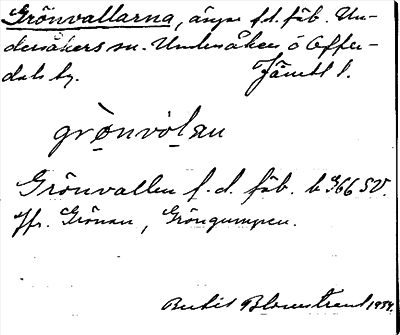 Grönvallarna, ängar f.d. fäb. Un-
dersåkers sn. Undersåkers o Offer-
dals tg. Jämtl l.
grònvòlạn
Grönvallen f. d. fäb. b 366 SV.
Jfr. Grönan, Gröngumpen.
Berit Blomstrand 1954.